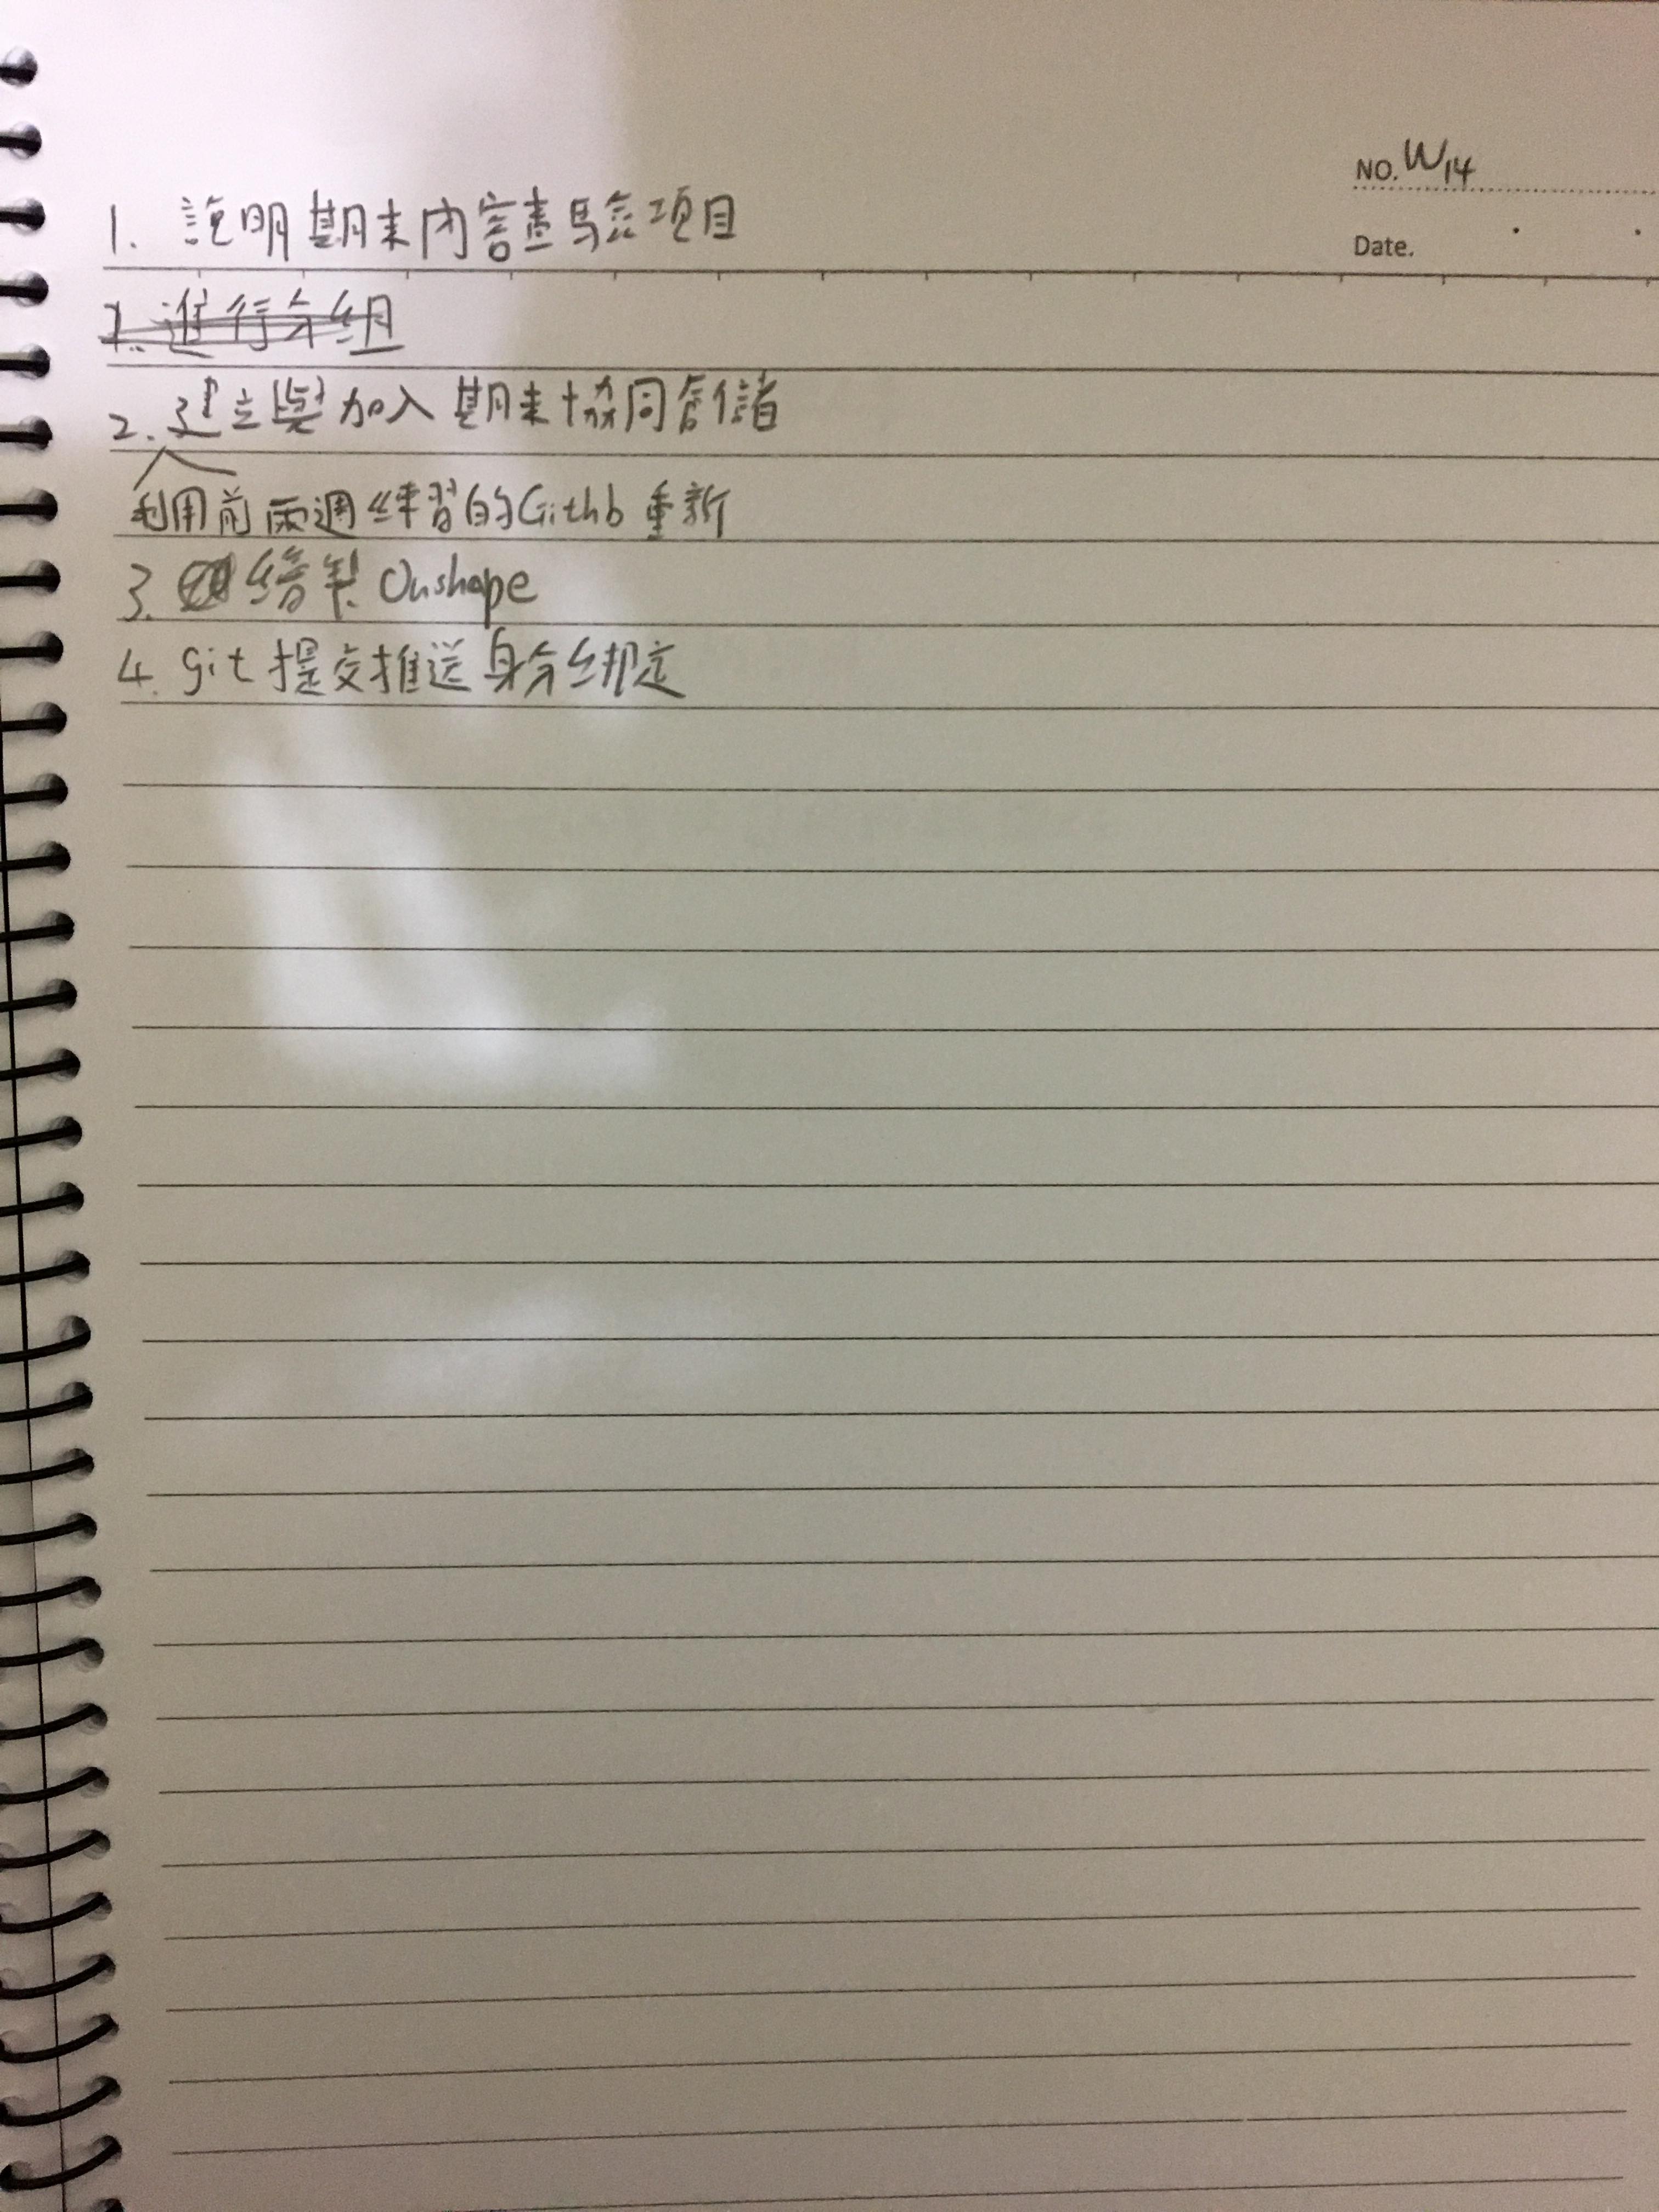 NO. W14
Date.
1. 說明期末內容查驗項目
1. 進行分組
2. 建立與加入期末協同倉儲
利用前兩週練習的Githb重新
3. 繪製 Onshape
4. git 提交推送身分綁定